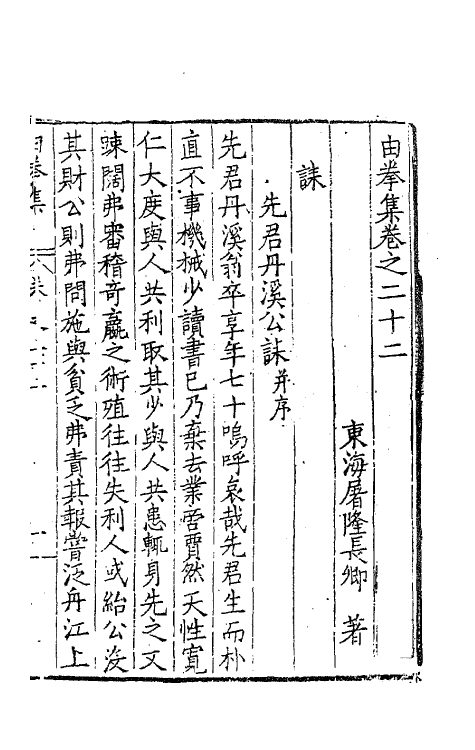 由拳集卷之二十二
東海屠隆長卿 著
誄
先君丹溪公誄并序
先君丹溪翁卒享年七十嗚呼哀哉先君生而朴
直不事機械少讀書已乃棄去業啇賈然天性寬
仁大度與人共利取其少與人共患輒身先之又
踈闊弗審稽竒羸之術殖往往失利人或紿公沒
其財公則弗問施與貧乏弗責其報嘗泛舟江上
由拳集